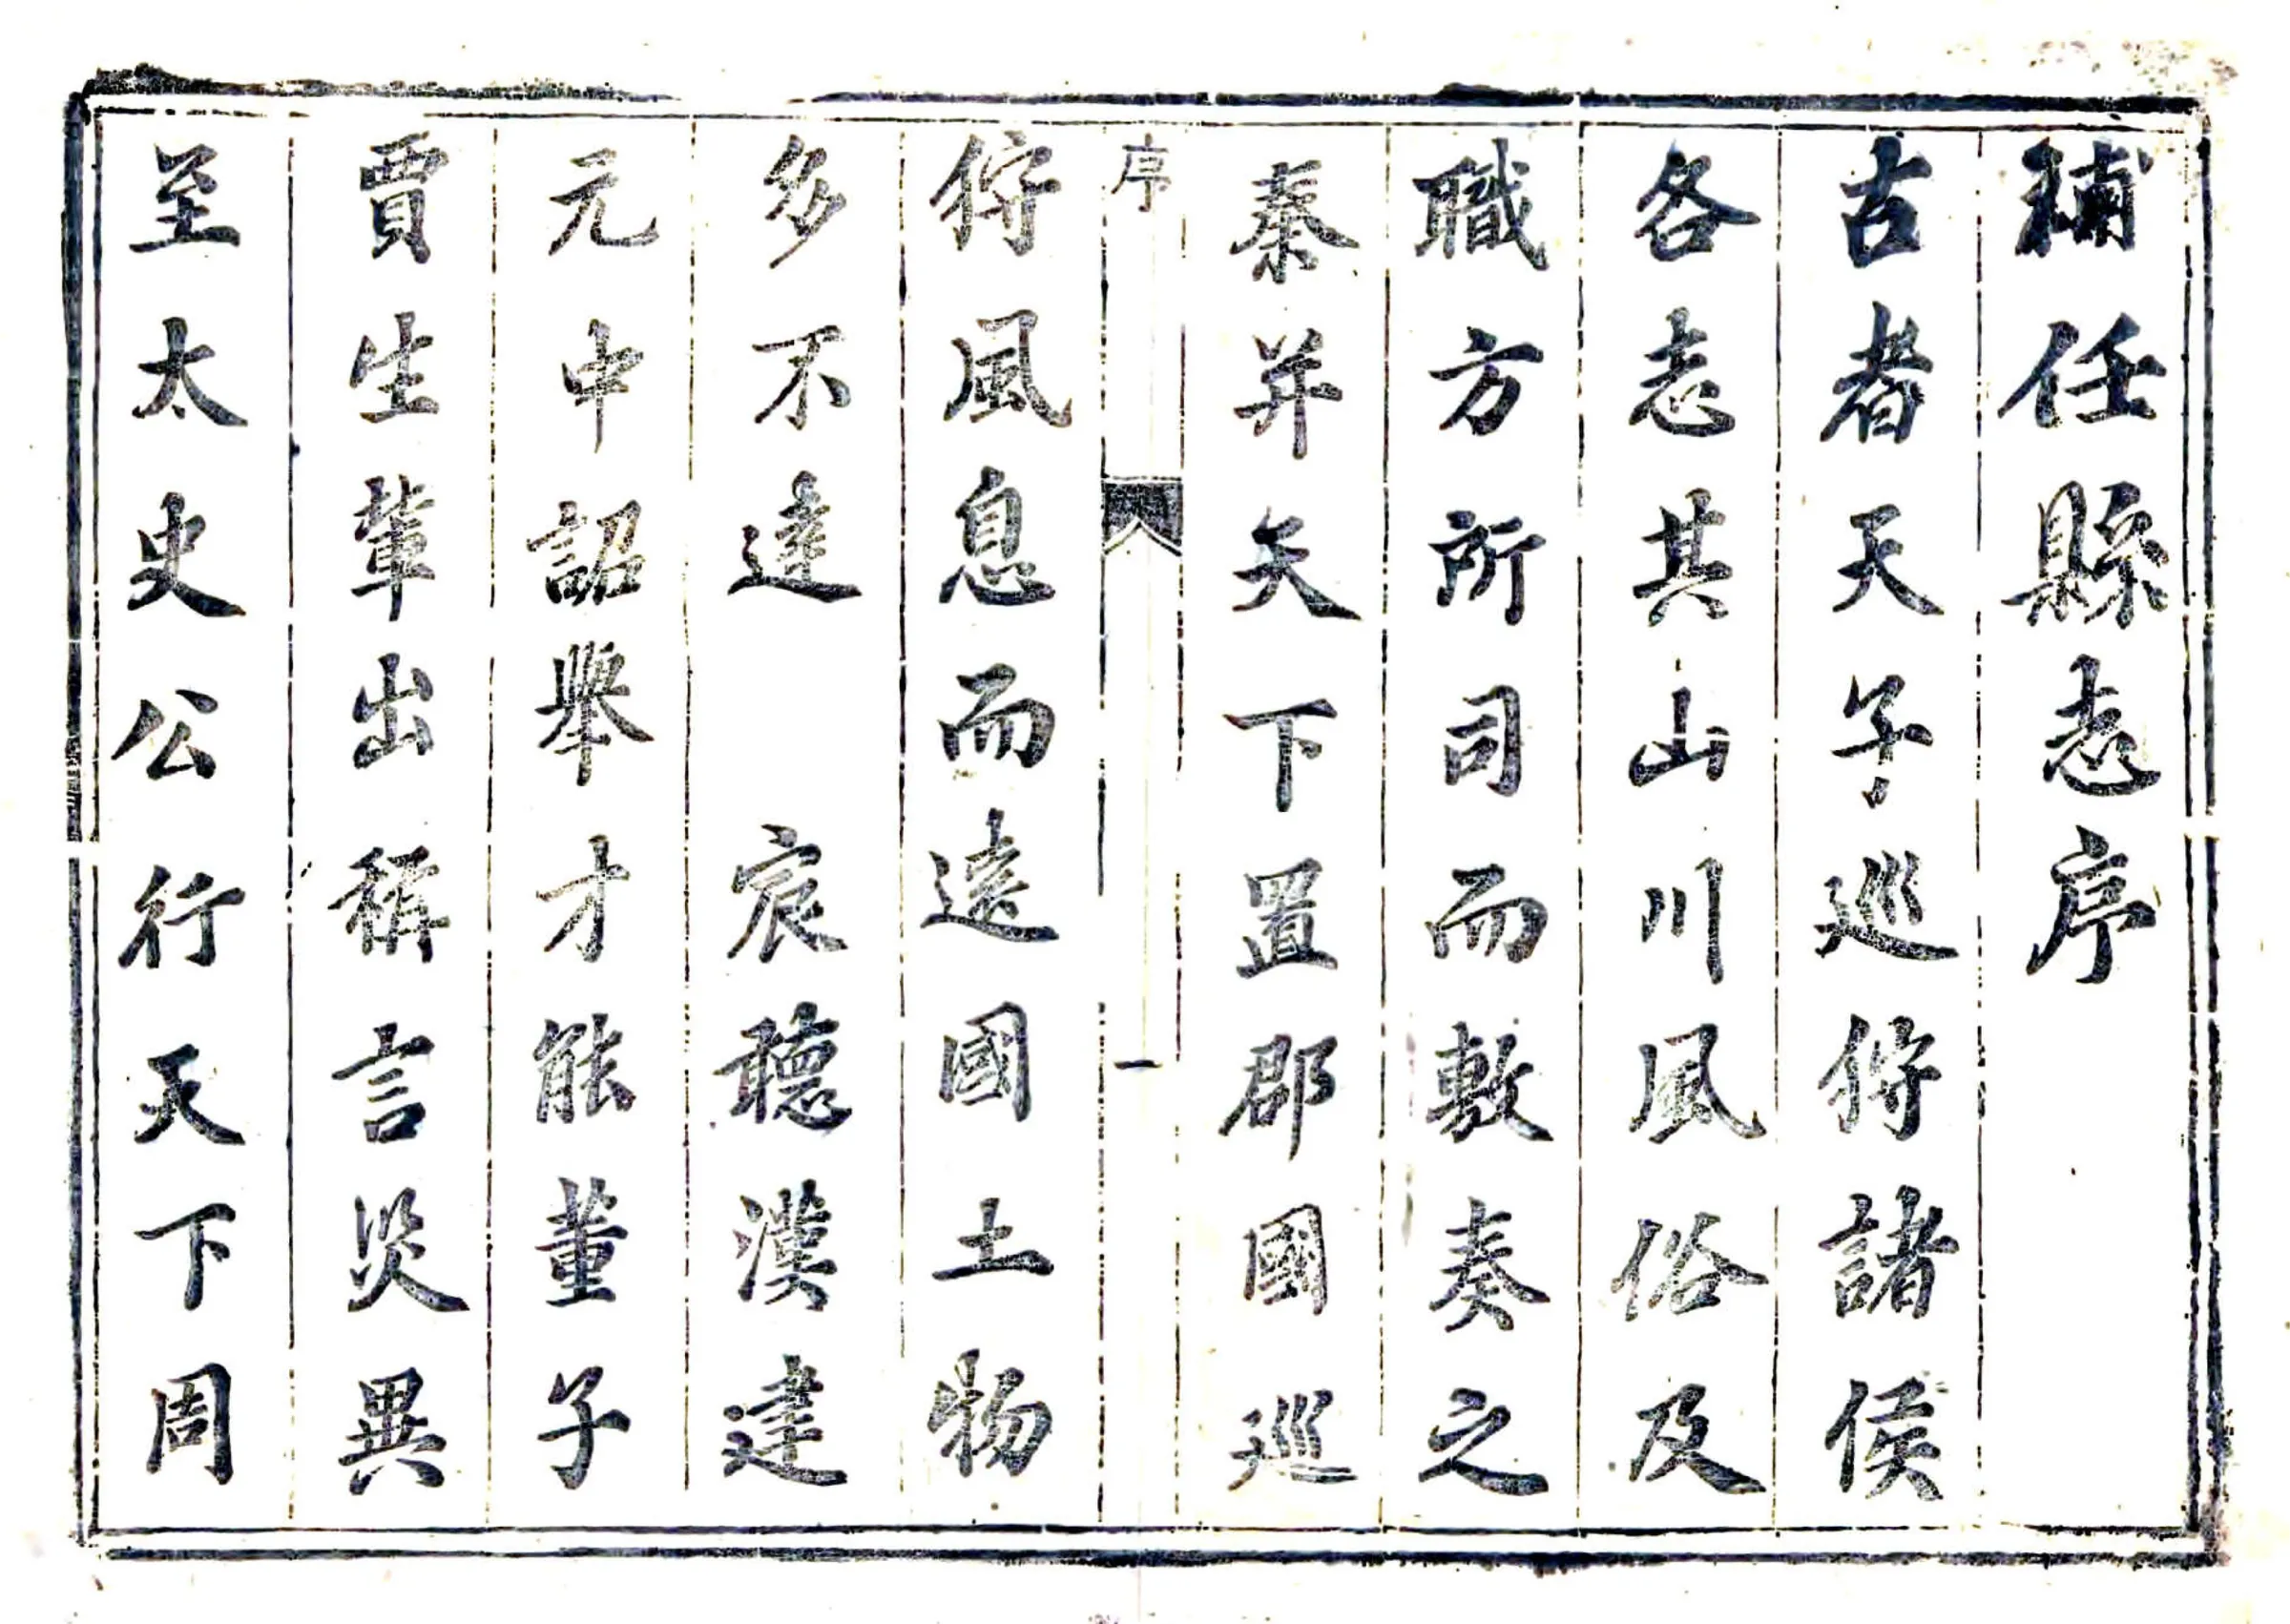 補任縣志序
古者天子巡狩諸侯
各志其山川風俗及
職方所司而敷奏之
秦并天下置郡國巡
序
一
狩風息而遠國土物
多不達 宸聽漢建
元中詔舉才能董子
賈生輩出稱言災異
至太史公行天下周